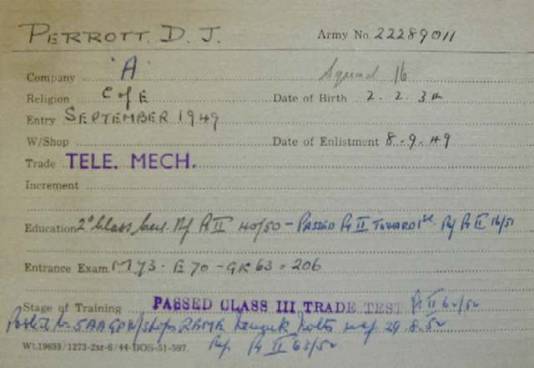 PERROTT. D. J. Army No. 22289011
Company 'A' Squad 16
Religion C of E Date of Birth 2. 2. 34
Entry SEPTEMBER 1949
W/Shop Date of Enlistment 8.9.49
Trade TELE. MECH.
Increment
Education 2° Class Ref Pt II 40/50 - PASSED Pt II TOWARD 1st Ref Pt II 16/51
Entrance Exam M 73 - E 70 - GK 63 = 206
Stage of Training PASSED CLASS III TRADE TEST Pt II 62/52
Posted to w.e.f. 29.8.52
Wt.19693/1273-2sr-6/44-DOS-51-597. Ref. Pt II 63/52